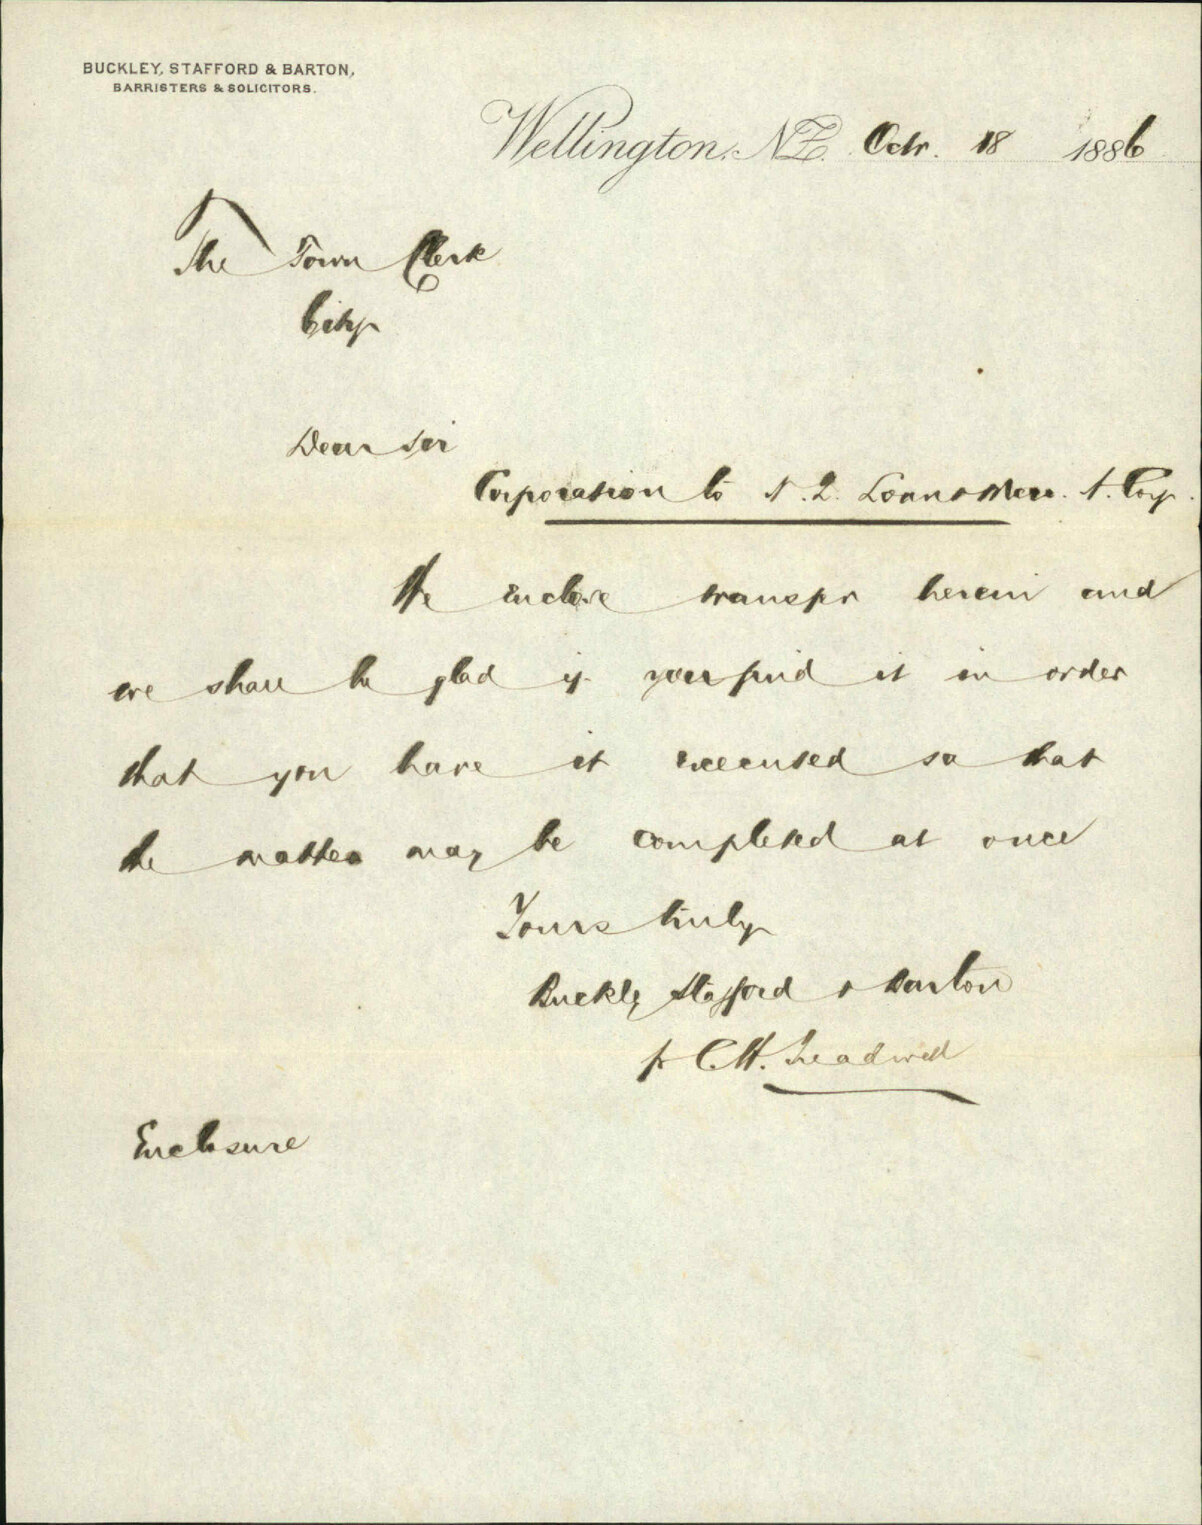 BUCKLEY, STAFFORD & BARTON,
BARRISTERS & SOLICITORS.
Wellington, NZ. Octr. 18 1886
The Town Clerk
City
Dear Sir
Corporation to N. Z. Loan & Merc. A. Coy.
We enclose transfer herein and
we shall be glad if you find it in order
that you have it executed so that
the matter may be completed at once
Yours truly
Buckley Stafford & Barton
pr C.H. Treadwell
Enclosure